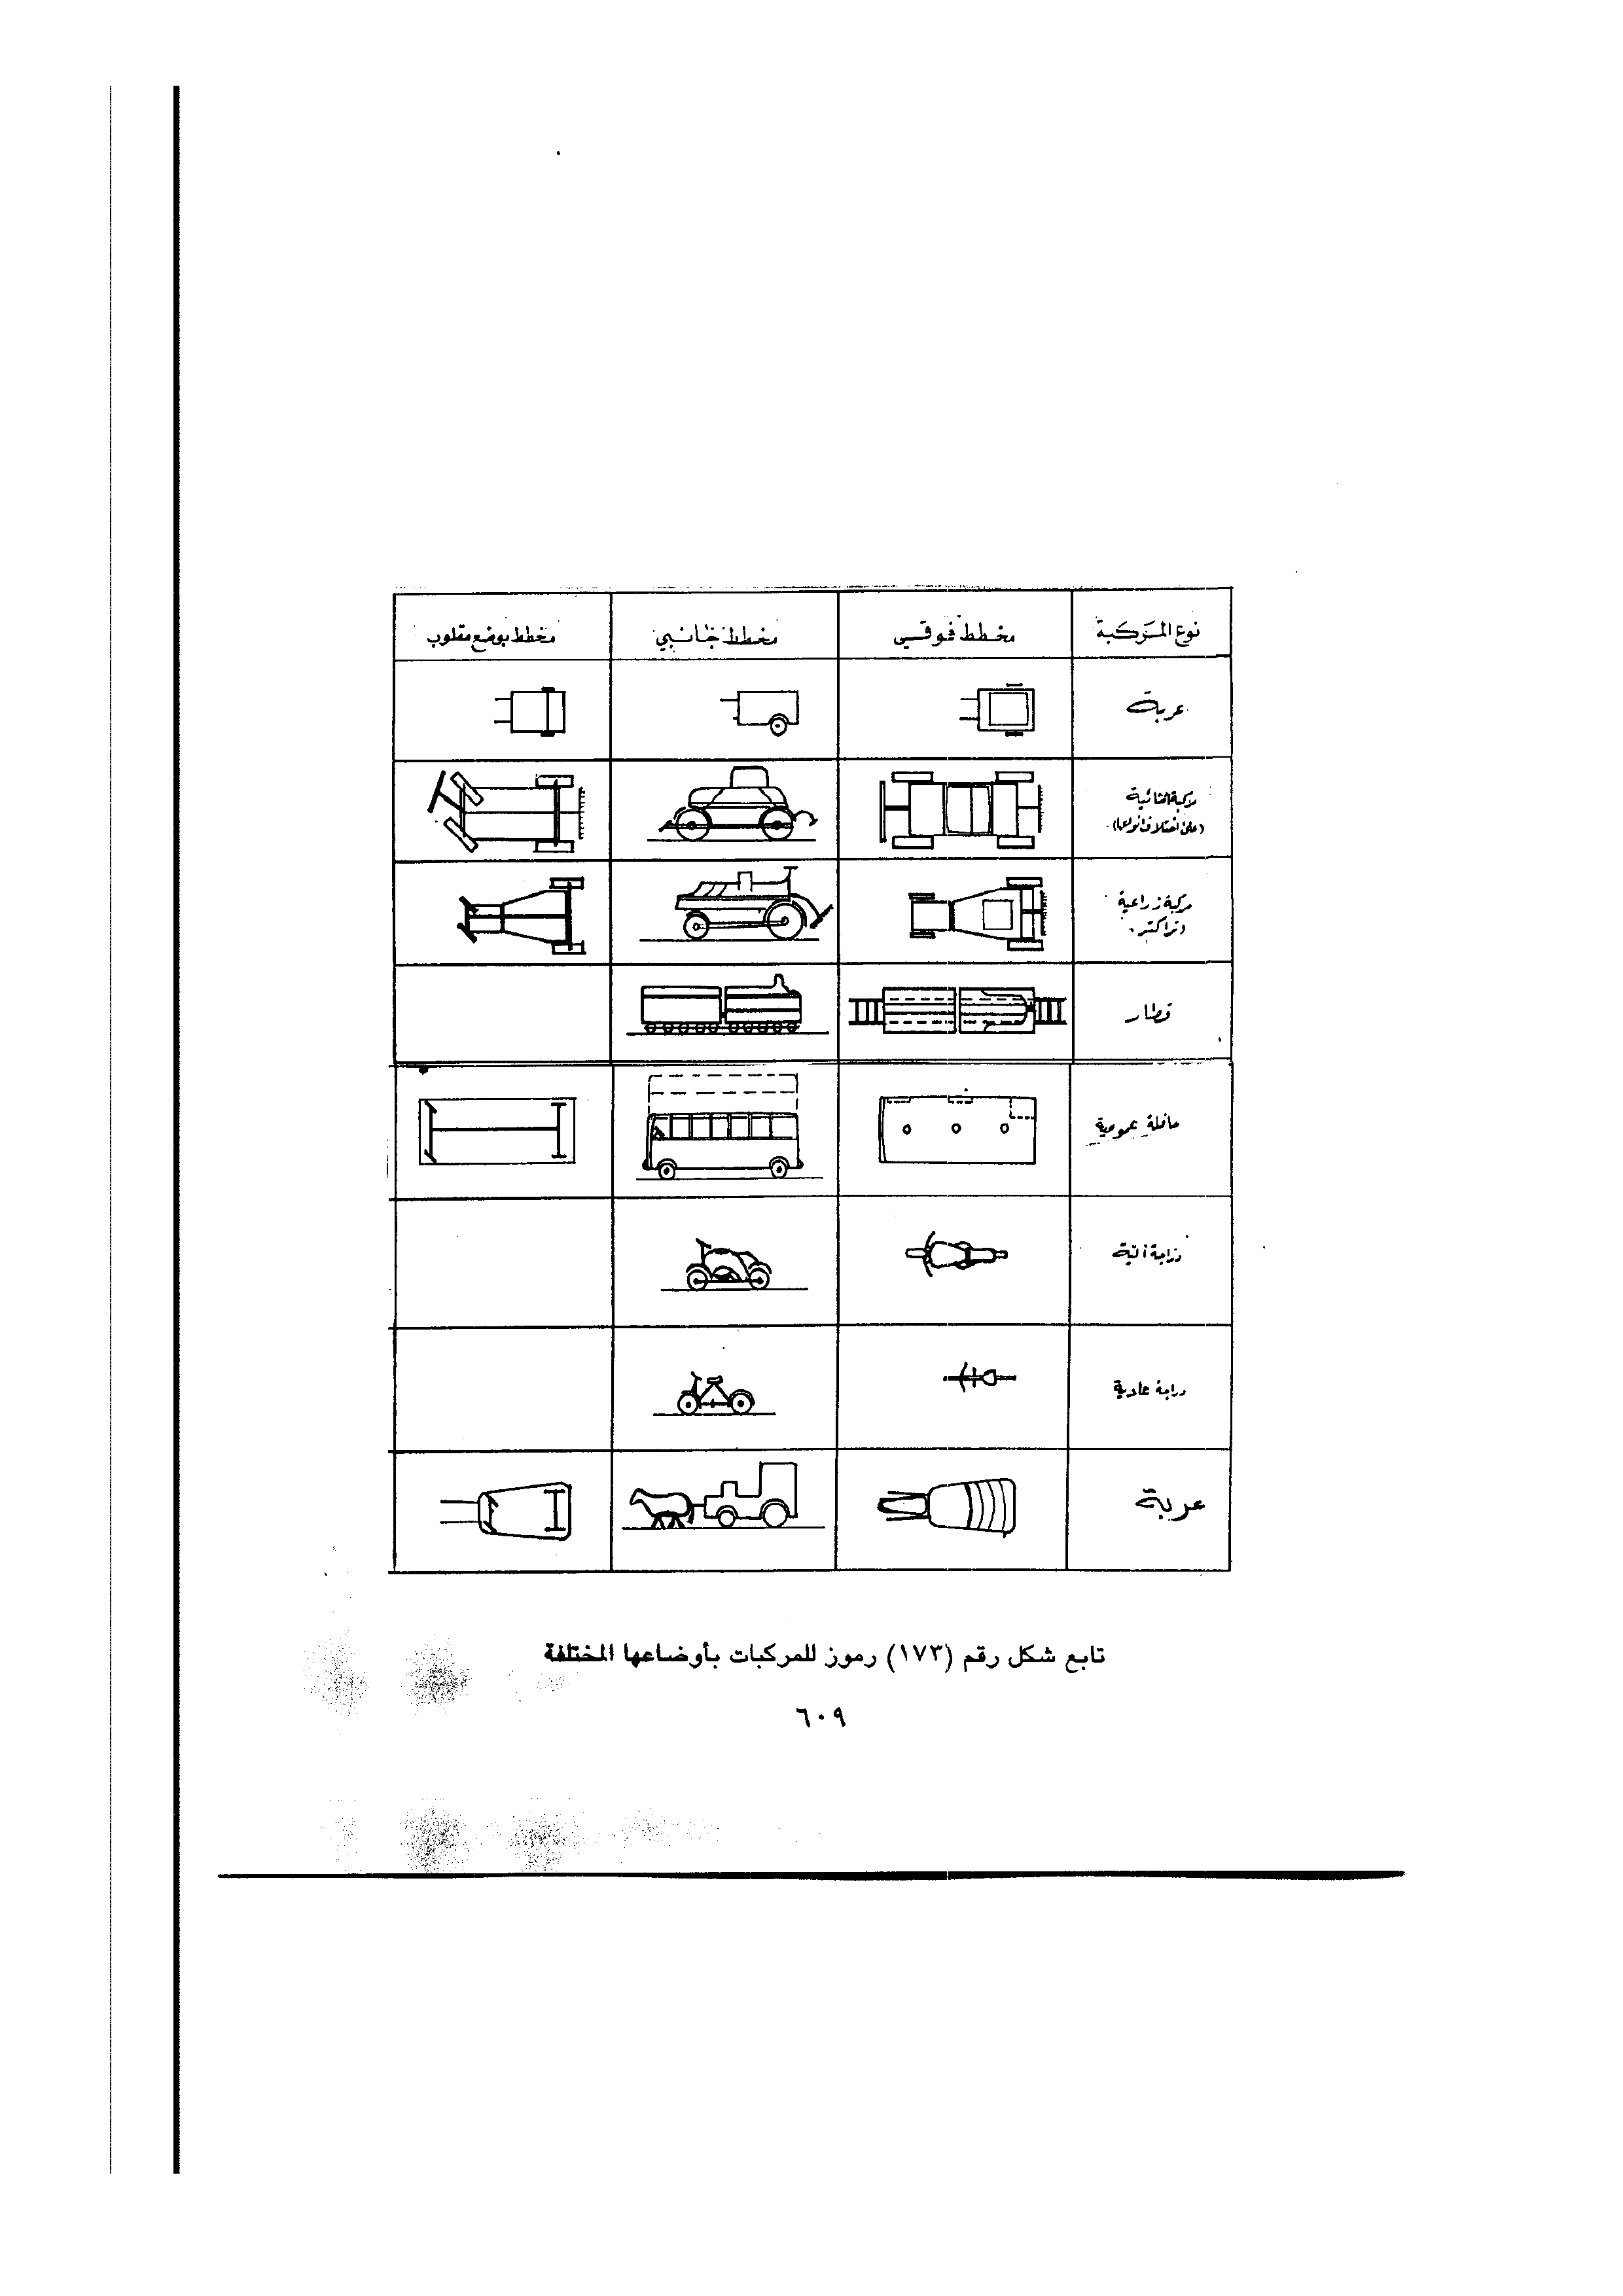 نوع المركبة
مخطط فوقي
مخطط جانبي
مخطط بوضع مقلوب
عربة
مركبة انشائية
(على اختلاف أنواعها)
مركبة زراعية
(تراكتر)
قطار
حافلة عمومية
دراجة آلية
دراجة عادية
عربة
تابع شكل رقم (١٧٣) رموز للمركبات بأوضاعها المختلفة
٦٠٩